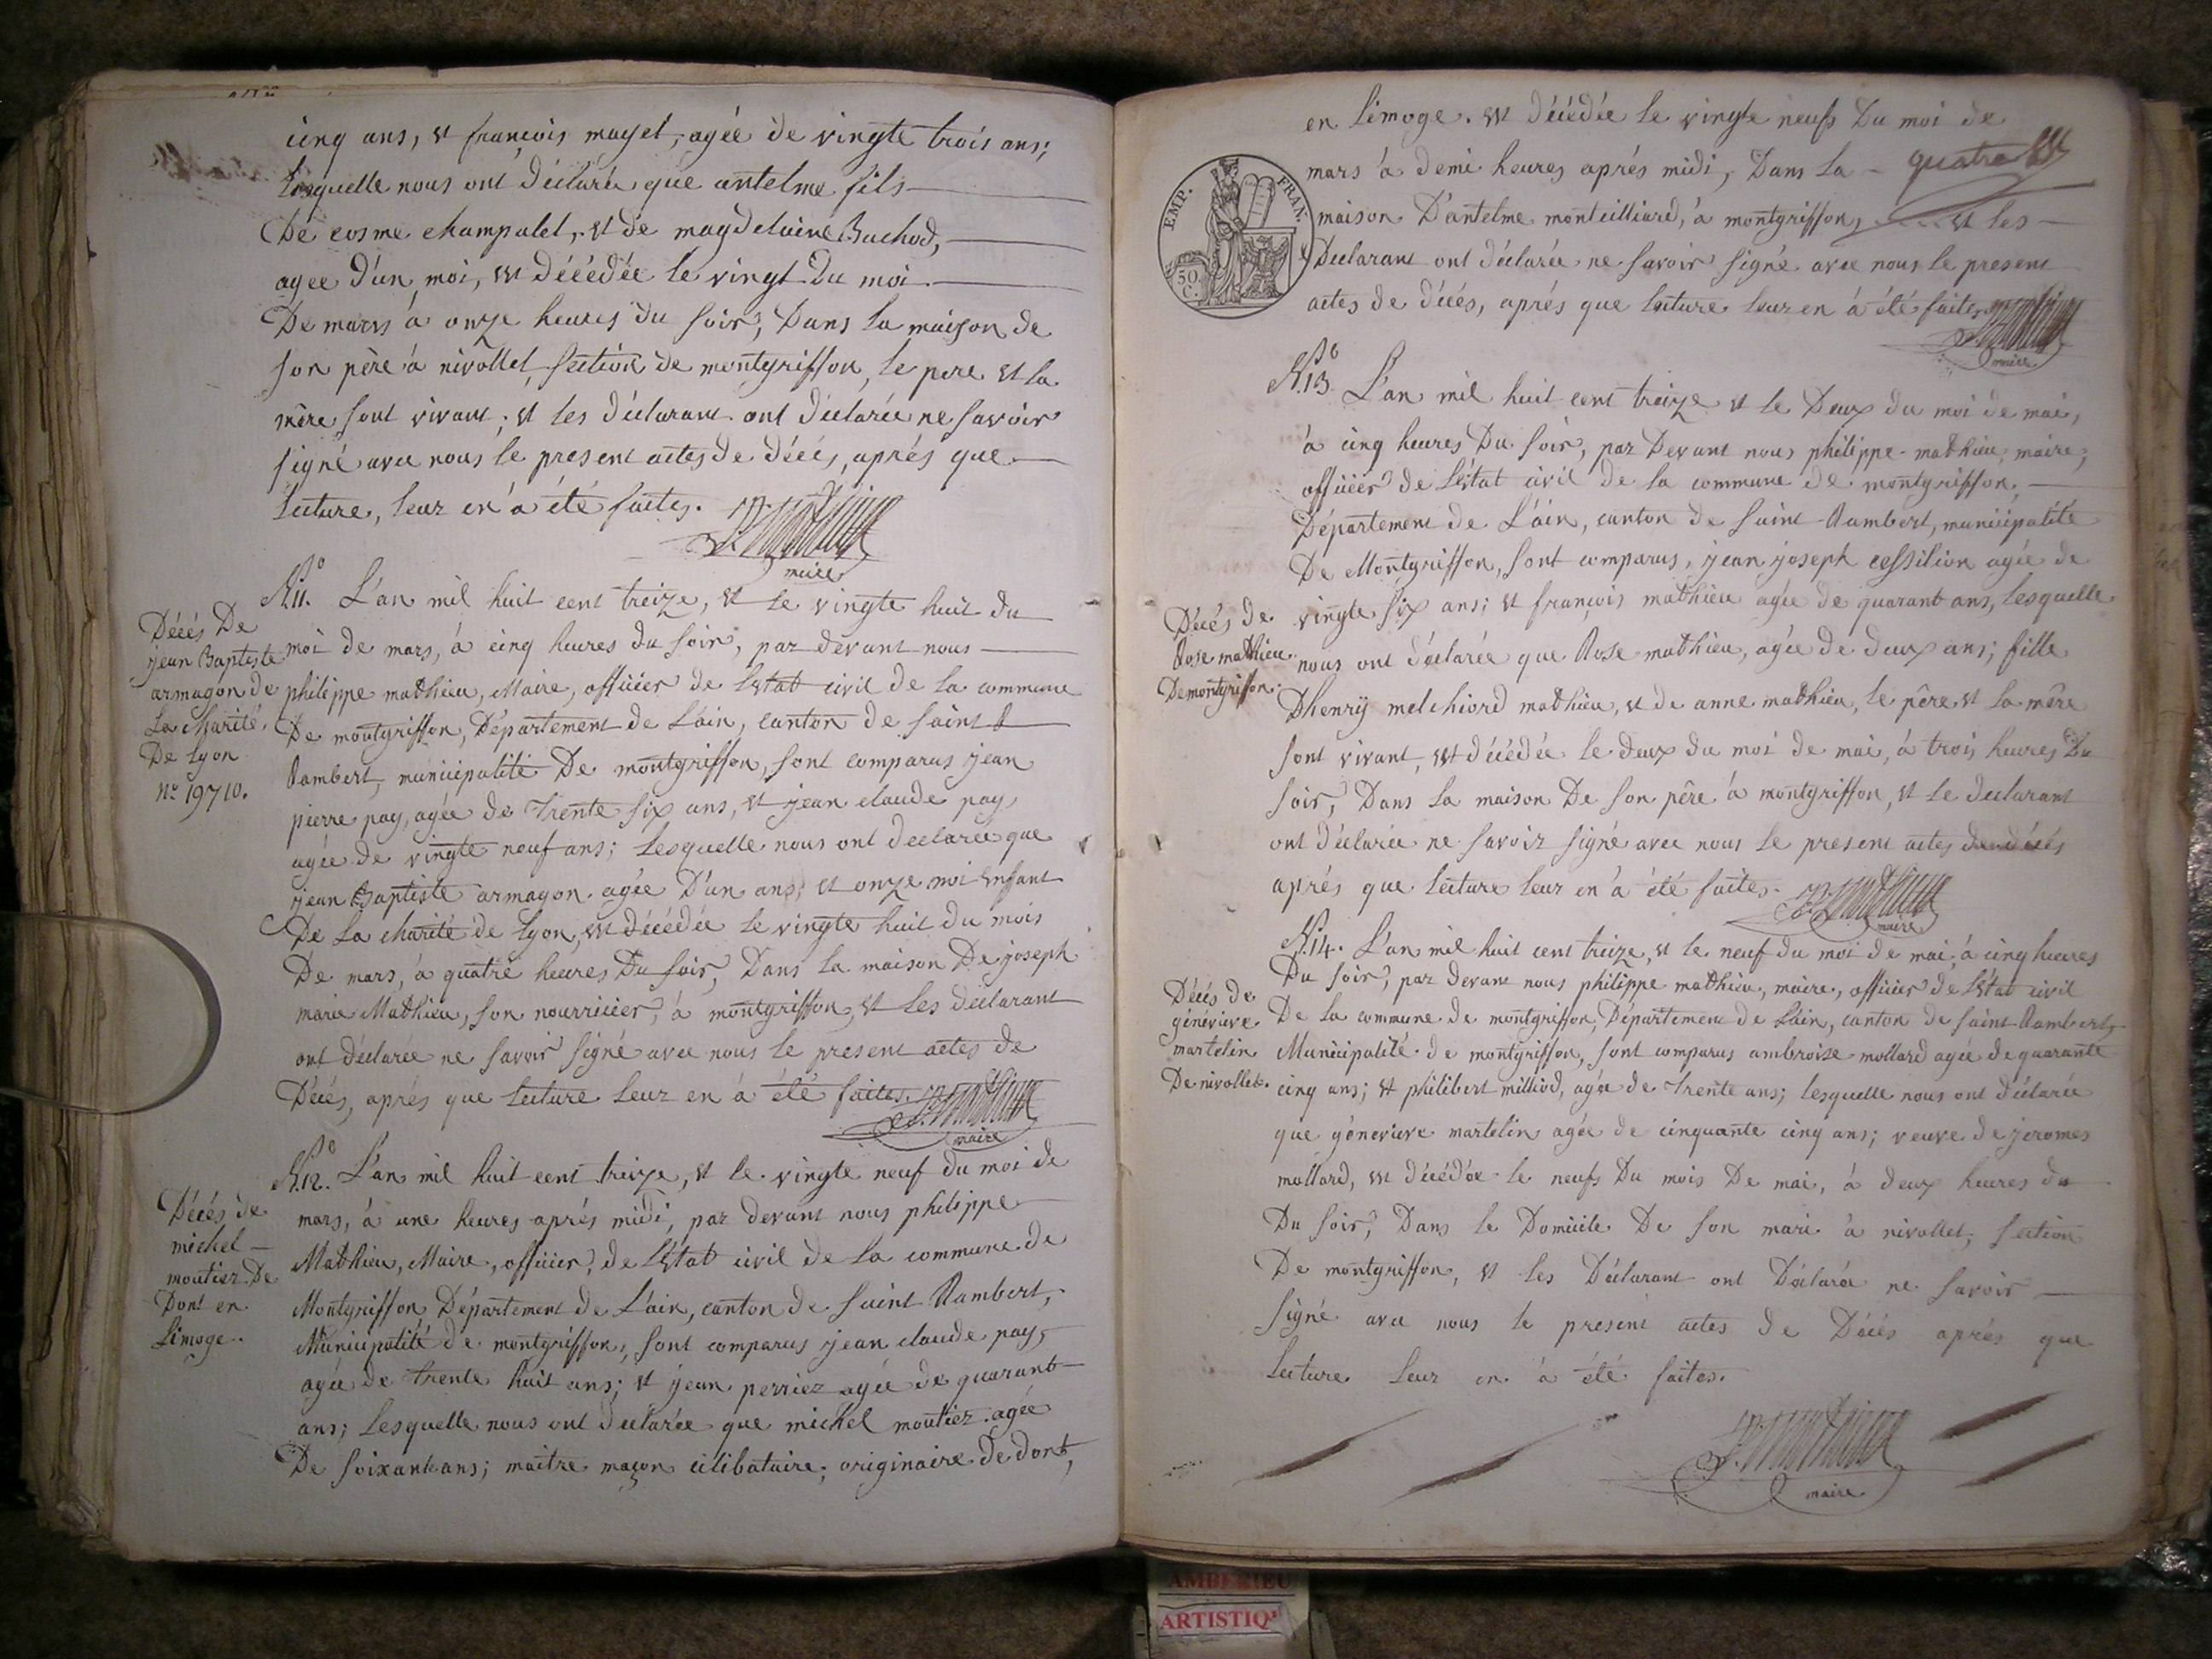 cinq ans, et françois mayet, agée de vingte trois ans;
lesquelle nous ont déclarée que antelme fils
De cosme champalet, et de magdelaine Buchod,
agee d'un moi, est décédée le vingt Du moi
De mars à onze heures du soir, Dans la maison de
son père à nivollet, section de montgriffon, le pere et la
mère sont vivant; et les déclarant ont déclarée ne savoir
signé avec nous le present actes de décés, aprés que
lecture, leur en à été faites. P. mathieu
maire
No 11. L'an mil huit cent treize, et le vingte huit du
Décés De
jean Baptiste
armagon de
La charité
De Lyon
No 19710.
moi de mars, à cinq heures du soir, par devant nous
philippe mathieu, Maire, officier de l'Etat civil de la commune
De montgriffon, Département de L'ain, canton de saint
Rambert, municipalité De montgriffon, sont comparus jean
pierre pay, agée de trente six ans, et jean claude pay,
agée de vingte neuf ans; Lesquelle nous ont declarée que
jean Baptiste armagon agée D'un ans, et onze moi enfant
De La charité de Lyon, est décédée le vingte huit du mois
De mars, à quatre heures Du soir, Dans la maison De joseph
marie Mathieu, son nourricier, à montgriffon, et Les déclarant
ont déclarée ne savoir signé avec nous le present actes de
Décés, aprés que lecture leur en à été faites. P. mathieu
maire
No 12. L'an mil huit cent treize, et le vingte neuf du moi de
Décés de
michel
moutier De
Dont en
Limoge.
mars, à une heures aprés midi, par devant nous philippe
Mathieu, Maire, officier, de l'Etat civil de la commune de
Montgriffon Département de L'ain, canton de saint Rambert,
Municipalité de montgriffon, sont comparus jean claude pay,
agée de trente huit ans; et jean perrier agée de quarant
ans; Lesquelle nous ont declarée que michel moutier agée
De soixante ans; maitre maçon célibataire, originaire de dont,
en Limoge. est décédée le vingte neufs Du moi de
mars à demi heures aprés midi, Dans la quatre
EMP. FRAN.
50 C.
maison D'antelme monteilliard, à montgriffon, et les
Declarant ont déclarée ne savoir signé avec nous le present
actes de décés, aprés que lecture leur en à été faites P. mathieu
maire
No 13. L'an mil huit cent treize et le Deux du moi de mai,
à cinq heures Du soir, par Devant nous philippe mathieu, maire,
officier de l'Etat civil De la commune de montgriffon,
Département de L'ain, canton de saint Rambert, municipalité
De Montgriffon, sont comparus, jean joseph cessilion agée de
Décés de
Rose mathieu
De montgriffon.
vingte six ans; et françois mathieu agée de quarant ans, lesquelle
nous ont déclarée que Rose mathieu, agée de deux ans; fille
Dhenry melchiord mathieu, et de anne mathieu, le père et la mère
sont vivant, est décédée le deux du moi de mai, à trois heures Du
soir, Dans la maison De son père à montgriffon, et le declarant
ont déclarée ne savoir signé avec nous le present actes de décés
aprés que lecture leur en à été faites. P. mathieu
maire
No 14. L'an mil huit cent treize, et le neuf du moi de mai, à cinq heures
Du soir, par devant nous philippe mathieu, maire, officier de l'Etat civil
Décés de
génevieve
martelin
De nivollet.
De la commune de montgriffon, Département de L'ain, canton de saint Rambert,
Municipalité de montgriffon, sont comparus ambroise mollard agée de quarante
cinq ans; et philibert milliod, agée de trente ans; lesquelle nous ont déclarée
que génevieve martelin agée de cinquante cinq ans; veuve de jeromes
mollard, est décédée le neufs Du mois De mai, à deux heures du
Du soir, Dans le Domicile De son mari à nivollet, section
De montgriffon, et les Déclarant ont Déclarée ne savoir
signé avec nous le present actes de Décés aprés que
lecture leur en à été faites.
P. mathieu
maire
AMBERIEU
ARTISTIQ